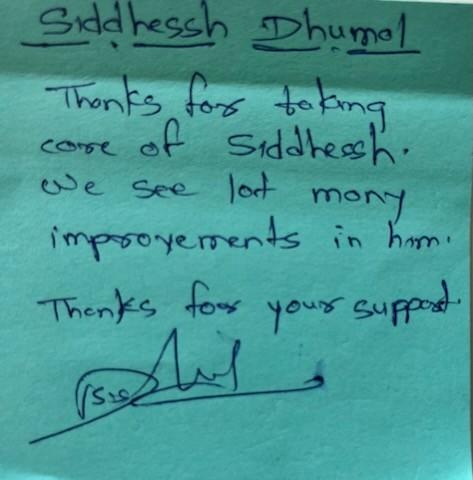 Siddhessh Dhumal
Thanks for taking
care of Siddhessh.
We see lot many
improvements in him.
Thanks for your support.